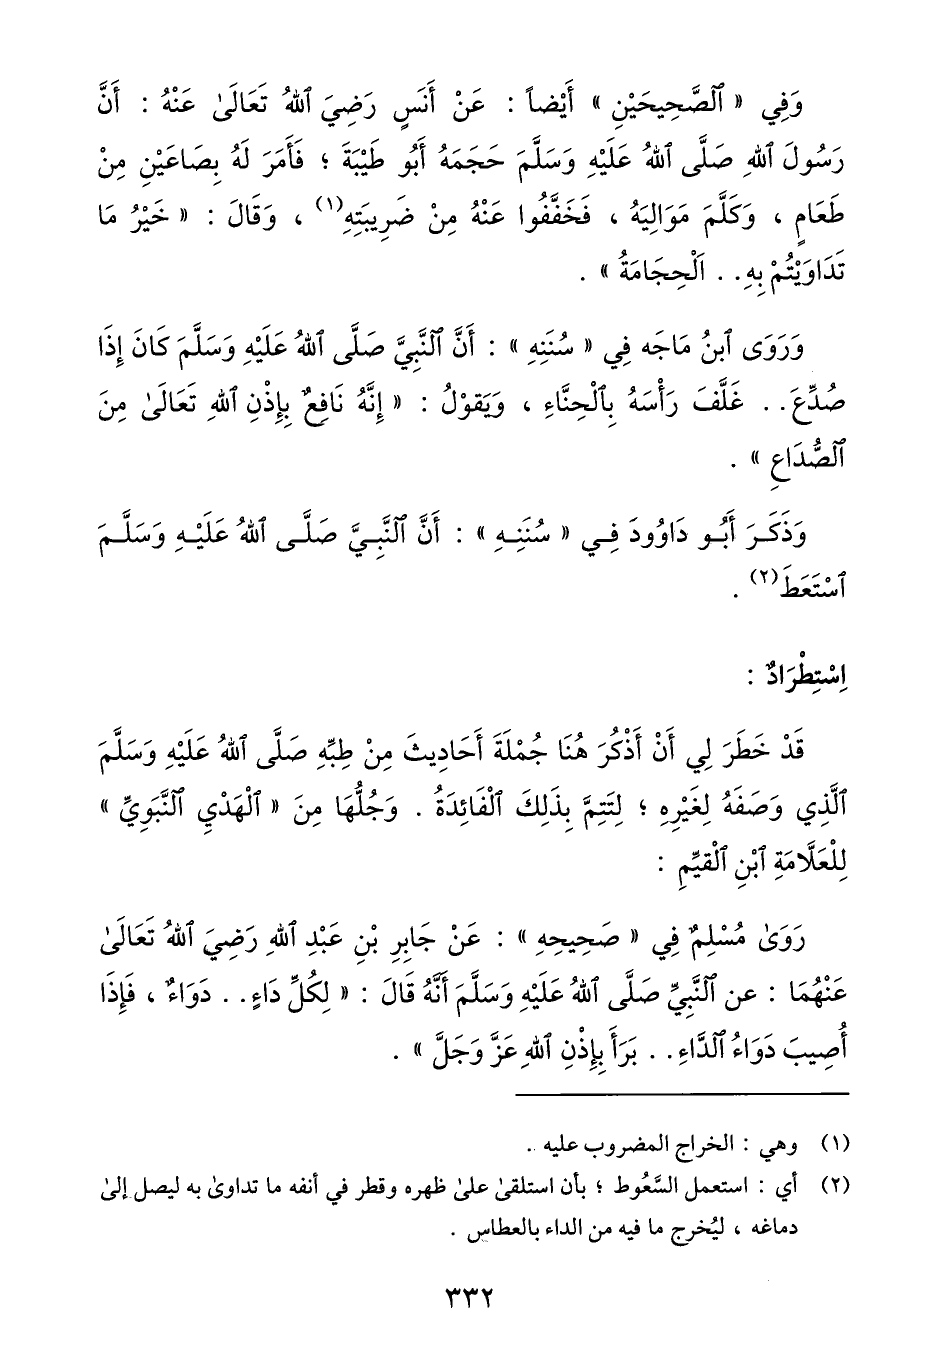 وَفِي « ٱلصَّحِيحَيْنِ » أَيْضاً : عَنْ أَنَسٍ رَضِيَ ٱللهُ تَعَالَىٰ عَنْهُ : أَنَّ
رَسُولَ ٱللهِ صَلَّى ٱللهُ عَلَيْهِ وَسَلَّمَ حَجَمَهُ أَبُو طَيْبَةَ ؛ فَأَمَرَ لَهُ بِصَاعَيْنِ مِنْ
طَعَامٍ ، وَكَلَّمَ مَوَالِيَهُ ، فَخَفَّفُوا عَنْهُ مِنْ ضَرِيبَتِهِ(١) ، وَقَالَ : « خَيْرُ مَا
تَدَاوَيْتُمْ بِهِ . . اَلْحِجَامَةُ » .
وَرَوَى ٱبنُ مَاجَه فِي « سُنَنِهِ » : أَنَّ ٱلنَّبِيَّ صَلَّى ٱللهُ عَلَيْهِ وَسَلَّمَ كَانَ إِذَا
صُدِّعَ . . غَلَّفَ رَأْسَهُ بِٱلْحِنَّاءِ ، وَيَقوْلُ : « إِنَّهُ نَافِعٌ بِإِذْنِ ٱللهِ تَعَالَىٰ مِنَ
ٱلصُّدَاعِ » .
وَذَكَـرَ أَبُـو دَاوُودَ فِـي « سُنَنِـهِ » : أَنَّ ٱلنَّبِـيَّ صَلَّـى ٱللهُ عَلَيْـهِ وَسَلَّـمَ
ٱسْتَعَطَ(٢) .
اِسْتِطْرَادٌ :
قَدْ خَطَرَ لِي أَنْ أَذْكُرَ هُنَا جُمْلَةَ أَحَادِيثَ مِنْ طِبِّهِ صَلَّى ٱللهُ عَلَيْهِ وَسَلَّمَ
ٱلَّذِي وَصَفَهُ لِغَيْرِهِ ؛ لِتَتِمَّ بِذَلِكَ ٱلْفَائِدَةُ . وَجُلُّهَا مِنَ « ٱلْهَدْيِ ٱلنَّبَوِيِّ »
لِلْعَلَّامَةِ ٱبْنِ ٱلْقيِّمِ :
رَوَىٰ مُسْلِمٌ فِي « صَحِيحِهِ » : عَنْ جَابِرِ بْنِ عَبْدِ ٱللهِ رَضِيَ ٱللهُ تَعَالَىٰ
عَنْهُمَا : عن ٱلنَّبِيِّ صَلَّى ٱللهُ عَلَيْهِ وَسَلَّمَ أَنَّهُ قَالَ : « لِكُلِّ دَاءٍ . . دَوَاءٌ ، فَإِذَا
أُصِيبَ دَوَاءُ ٱلدَّاءِ . . بَرَأَ بِإِذْنِ ٱللهِ عَزَّ وَجَلَّ » .
(١) وهي : الخراج المضروب عليه .
(٢) أي : استعمل السَّعُوط ؛ بأن استلقىٰ علىٰ ظهره وقطر في أنفه ما تداوىٰ به ليصل إلىٰ
دماغه ، ليُخرج ما فيه من الداء بالعطاس .
٣٣٢